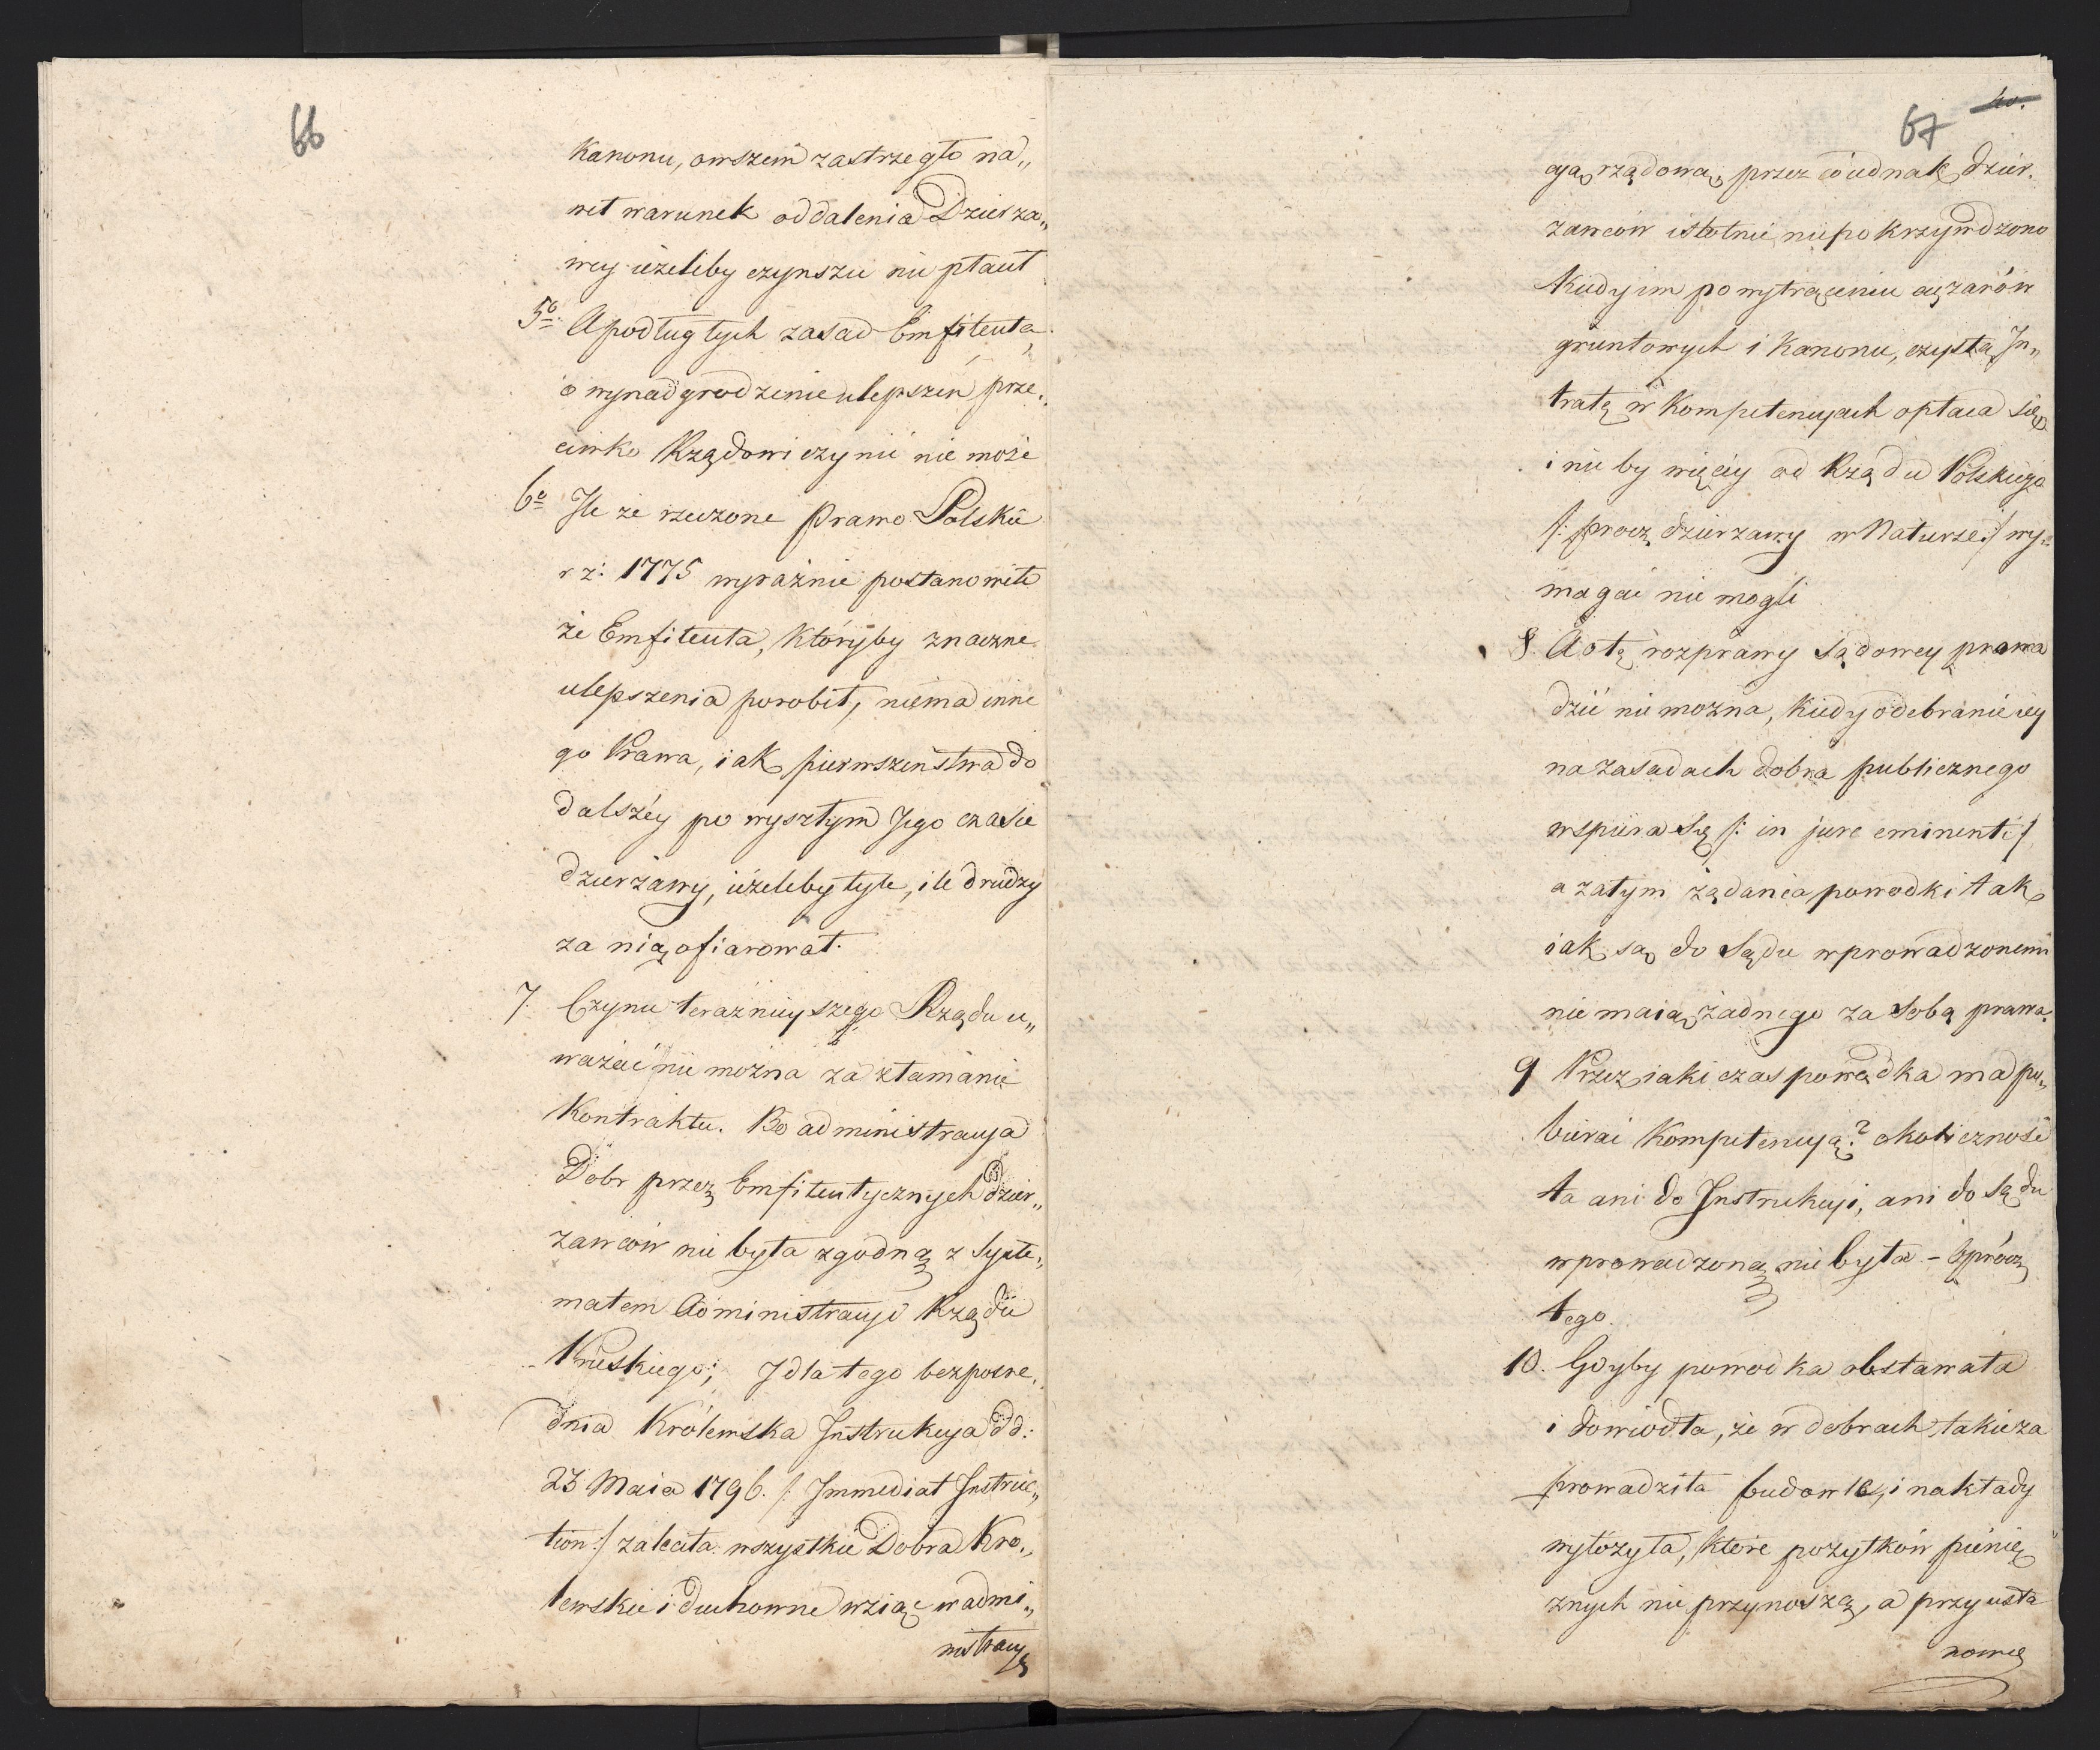 66
Kanonu, owszem zastrzegło na„
wet warunek oddalenia Dzierza„
wcy ieżeliby czynszu nie płacił
5º A podług tych zasad Emfiteuta
o wynadgrodzenie ulepszen prze„
ciwko Rządowi czynić nie może
6º Ile że rzeczone Prawo Polskie
r z: 1775 wyraźnie postanowiło
że Emfiteuta, któryby znaczne
ulepszenia porobił, niema inne
go Prawa, iak pierwszeństwa do
dalszéy po wyszłym Jego czasie
dzierżawy, ieżeliby tyle, ile drudzy
za nią ofiarował.
7. Czynu teraźnieyszego Rządu u„
ważać nie można za złamanie
Kontraktu. Bo administracya
Dobr przez Emfiteutycznych Dzier„
zawców nie była zgodną z Syste„
matem Administracyi Rządu
Pruskiego; I dla tego bezpośre„
dnia Królewska Instrukcya dd:
23 Maia 1796. /: Immediat Instruc„
tion :/ zaleciła wszystkie Dobra Kro„
lewskie i duchowne wziąć w admi„
nistracyę
40.
67
cyą rządową, przez co iednak dzier.
zawców istotnie nie pokrzywdzono
Kiedy im po wytrąceniu ciężarów
gruntowych i Kanonu, czysta In„
tratę w Kompetencyach opłaca się
i nie by więcéy od Rządu Polskiego
/: procz dzierzawy w Naturze :/ wy„
magać nie mogli
8. A o tę rozprawy Sądowey prowa
dzić nie można, Kiedy odebranie iey
na zasadach dobra publicznego
wspiera się /: in jure eminenti :/
a zatym żądania powodki tak
iak są do Sądu wprowadzonemi
nie maią żadnego za sobą prawa.
9 Przez iaki czas powodka ma po„
bierać Kompetencyą? okoliczność
ta ani do Instrukcyi, ani do Sądu
wprowadzoną nie była - oprócz
tego.
10. Gdyby powodka obstawała
i dowiodła, że w dobrach takie za
prowadziła budowle, i nakłady
wyłożyła, które pożytków pienię
znych nie przynoszą, a przy usta
nowie